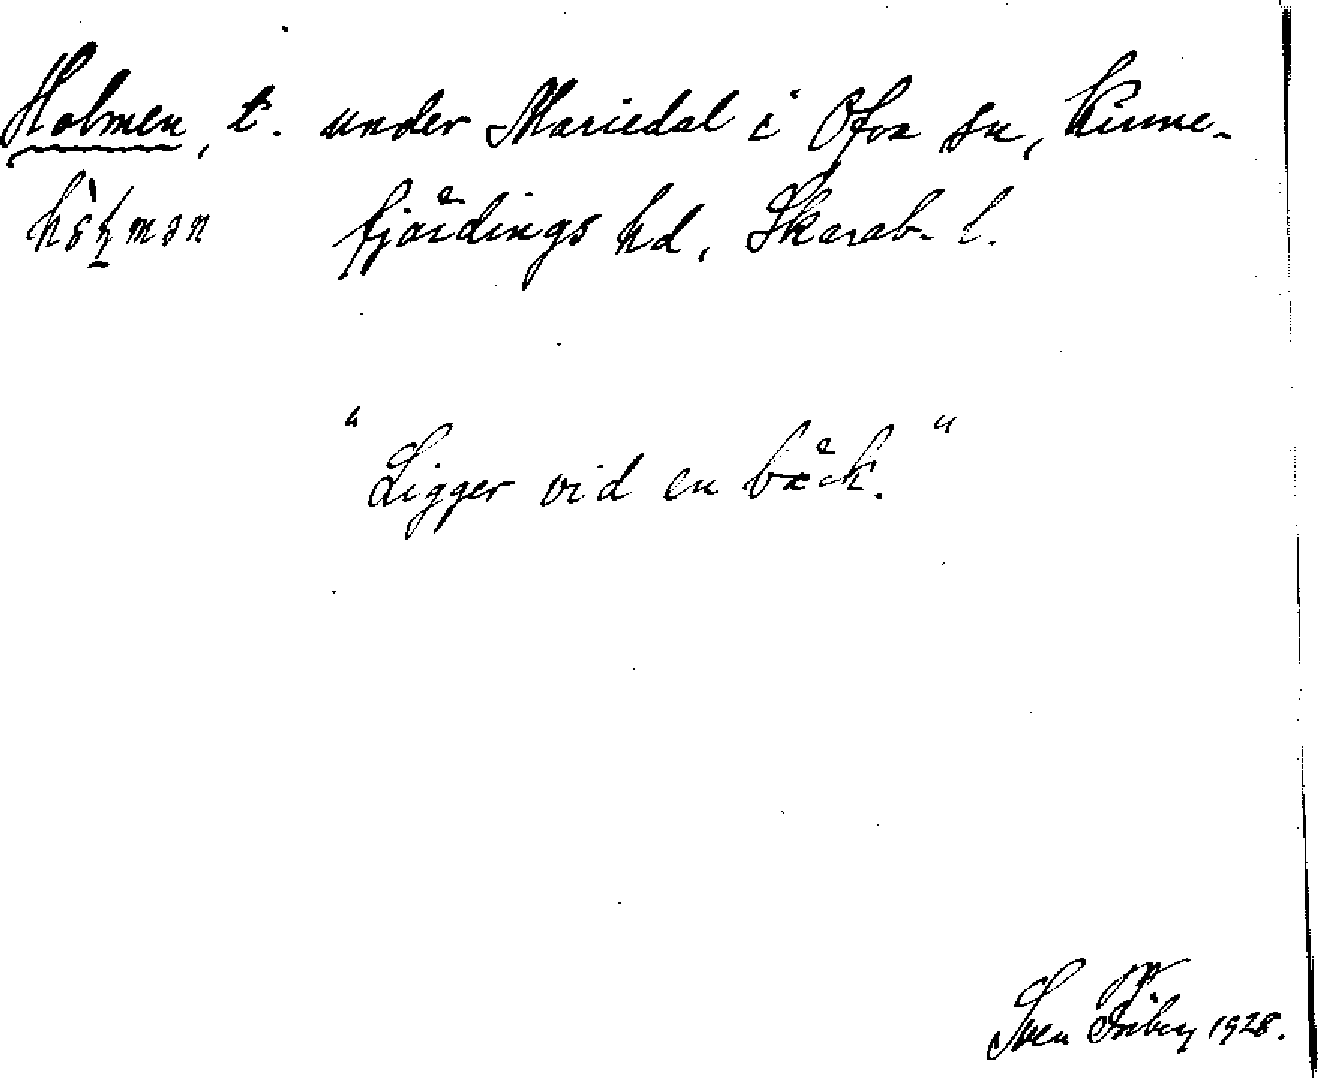 Holmen, t. under Mariedal i Ova sn, Kinne-
fjärdings hd, Skarab. l.
"Ligger vid en bäck."
Sven Friberg 1928.